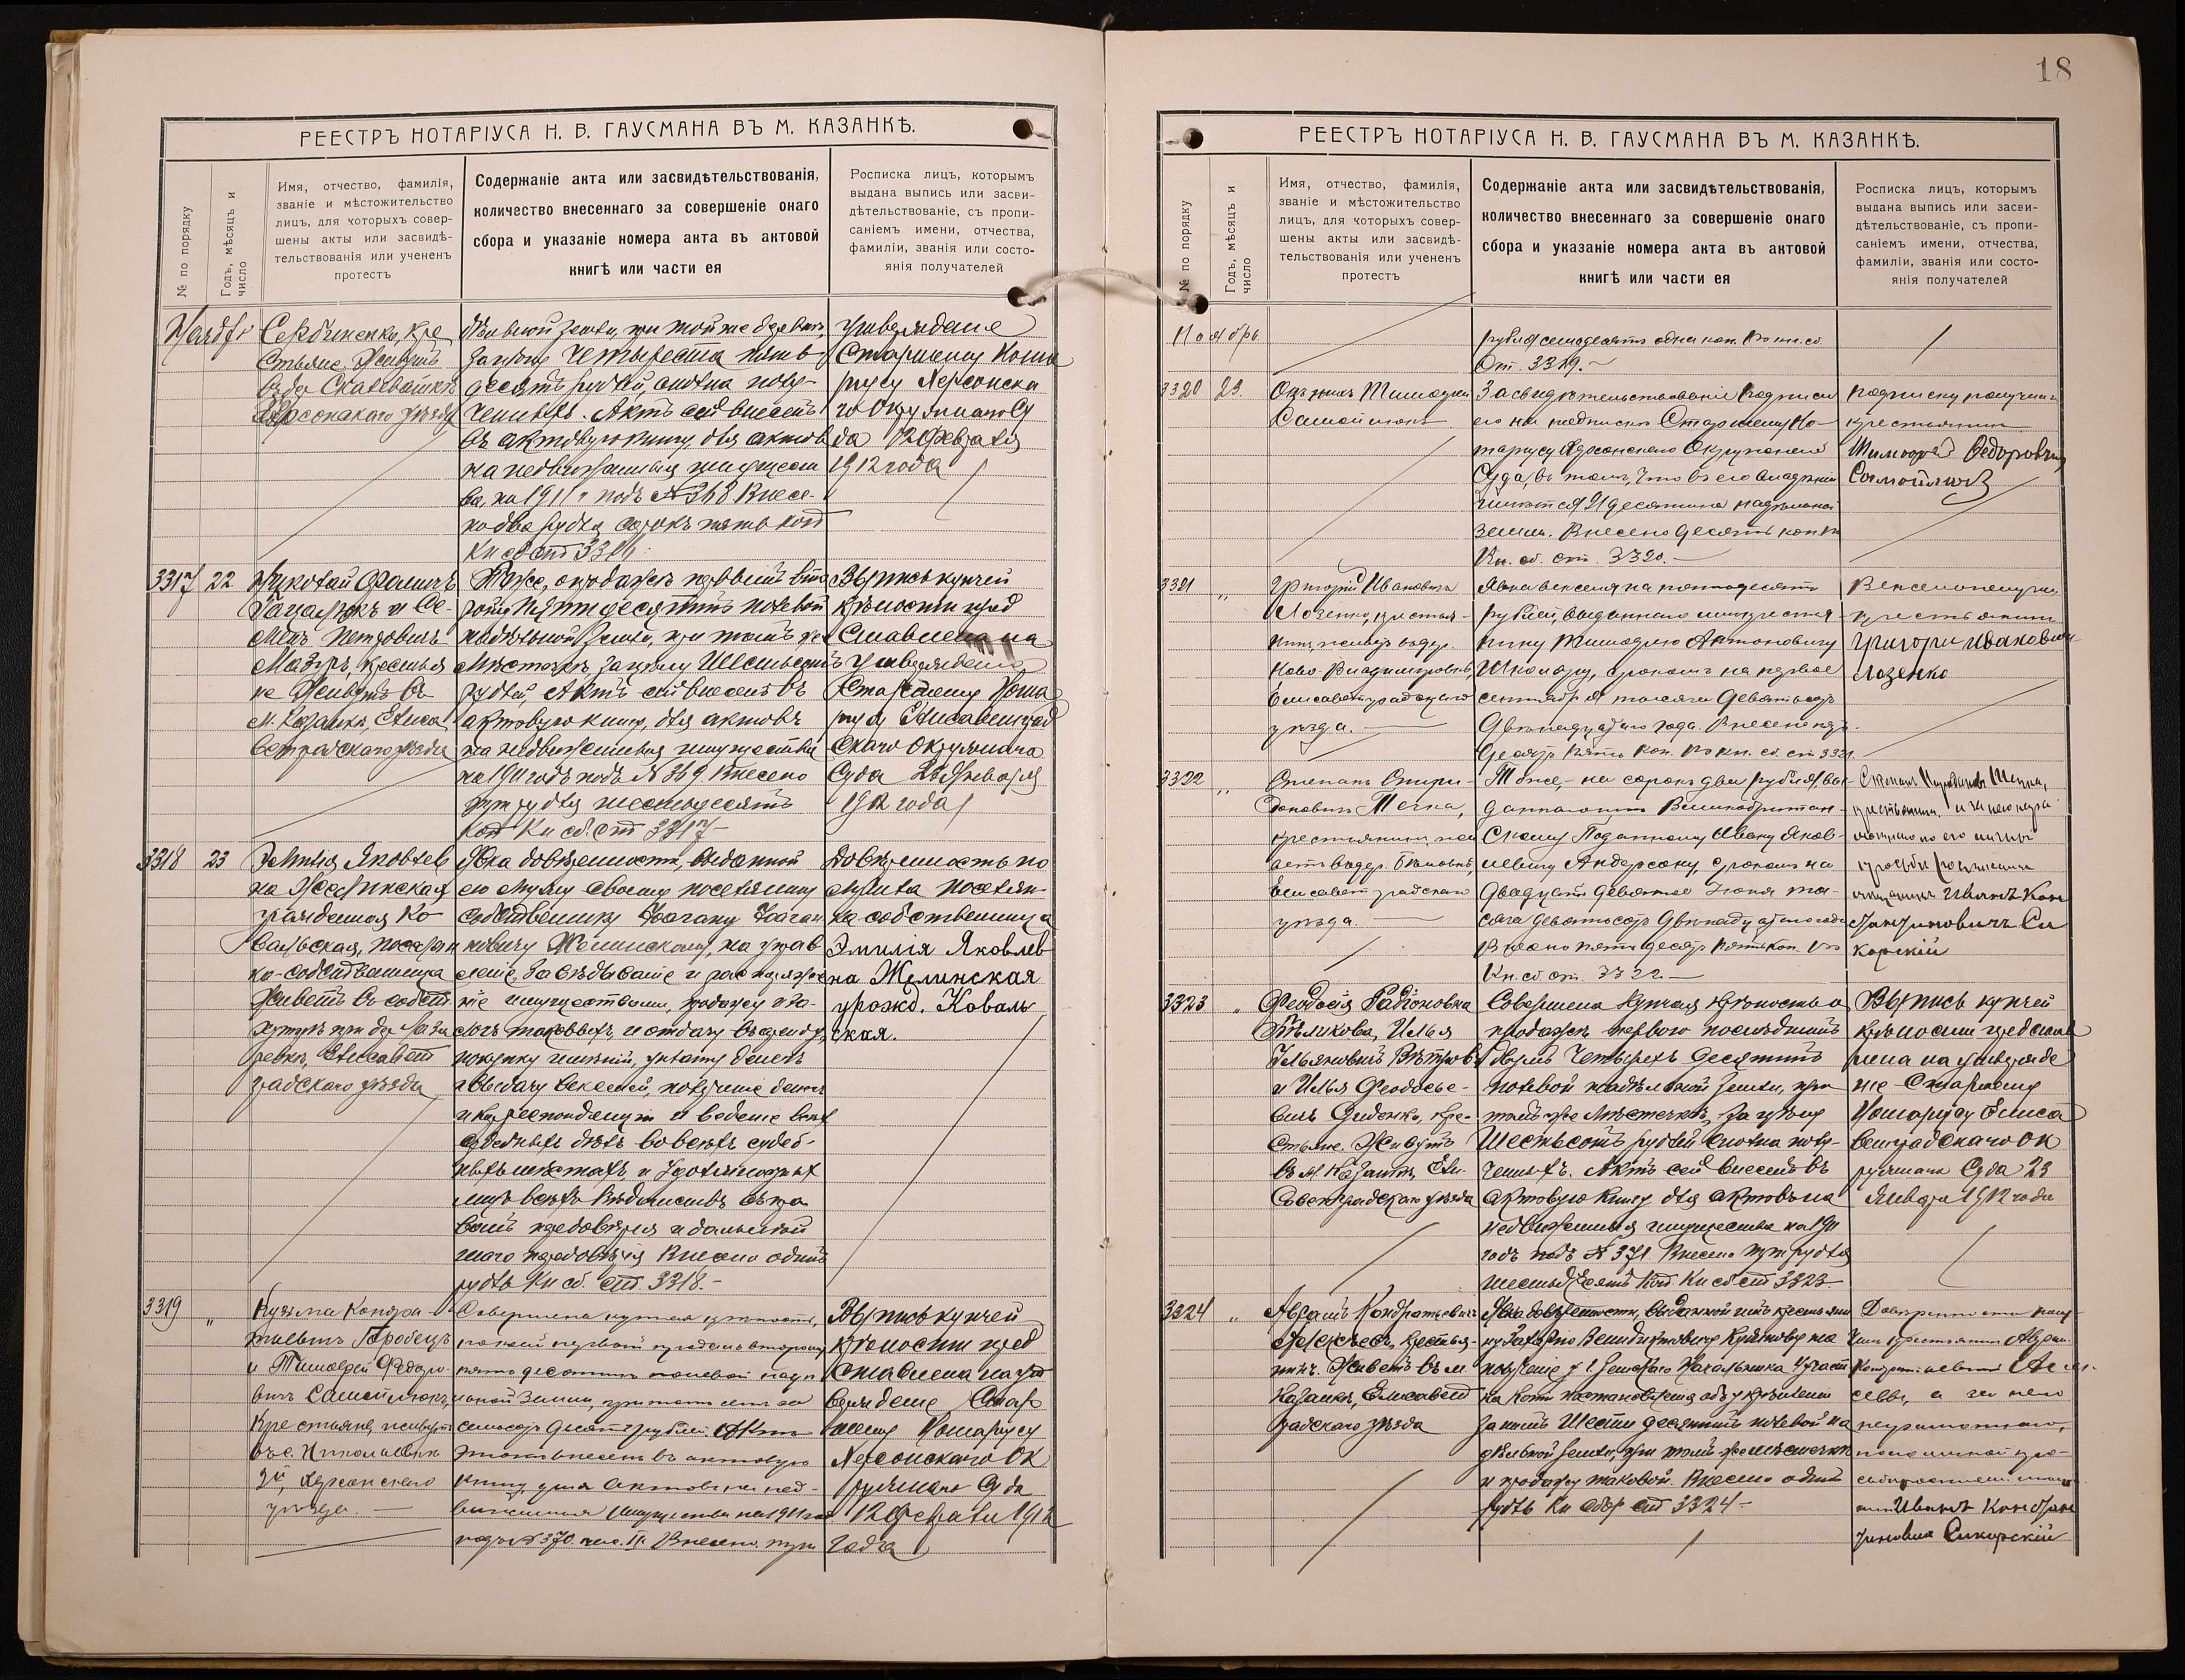 18
РЕЕСТРЪ НОТАРІУСА Н. В. ГАУСМАНА ВЪ М. КАЗАНКѢ.
№ по порядку
Годъ, мѣсяцъ и
число
Имя, отчество, фамилія,
званіе и мѣстожительство
лицъ, для которыхъ совер-
шены акты или засвидѣ-
тельствованія или учененъ
протестъ
Содержаніе акта или засвидѣтельствованія,
количество внесеннаго за совершеніе онаго
сбора и указаніе номера акта въ актовой
книгѣ или части ея
Росписка лицъ, которымъ
выдана выпись или засви-
дѣтельствованіе, съ пропи-
саніемъ имени, отчества,
фамиліи, званія или состо-
янія получателей
Ноября
кре
стьяне. Живутъ
Херсонскаго уѣзда
земли, при той же деревнѣ,
за цѣну четыреста пять-
десятъ рублей, сполна полу-
ченныхъ. Актъ сей внесенъ
въ актовую книгу, для актовъ
на недвижимыя имущест
ва, на 1911 г подъ № 368 Внесе-
но два рубля сорокъ пять коп
Кн сб ст 3316
утвержденіе
Старшему Нота
ріусу Херсонска
го Окружнаго Су
да 12 Февраля
1912 года
3317
22
и Се-
менъ Петровичъ
Мазуръ, крестья
не Живутъ въ
м. Казанкѣ, Елиса
ветградскаго уѣзда
Тоже, о продажѣ первымъ вто
рому десятинъ полевой
надѣльной земли, при томъ же
Мѣстечкѣ за цѣну Шестьсотъ
рублей, Актъ сей внесенъ въ
актовую книгу, для актовъ
на недвижимыя имущества
на 1911 годъ подъ № 369. Внесено
три рубля шестьдесятъ
коп Кн сб. ст 3317-
Выпись купчей
крѣпости пред
ставлена на
утвержденіе
Старшему Нота
ріусу Елисаветград
скаго Окружнаго
Суда Января
1912 года
3318
23
Эмилія Яковлев
на Желинская
урожденная Ко
вальская, поселян
ка-собственница
Живетъ въ собств.
хуторѣ при дер
Елисавет
градскаго уѣзда
Явка довѣренности, выданной
ею мужу своему поселянину
собственнику Іоганну Іоган
новичу Желинскому, на управ
леніе, завѣдываніе и распоряже
ніе имуществомъ, продажу и за-
логъ таковыхъ, и отдачу въ аренду,
покупку имѣній, уплату денегъ
и выдачу векселей, полученіе денегъ
и корреспонденціи и веденіе всѣхъ
судебныхъ дѣлъ во всѣхъ судеб-
ныхъ мѣстахъ и у должностныхъ
лицъ всѣхъ вѣдомствъ съ пра
вомъ передовѣрія и дальнѣй
шаго передовѣрія Внесено одинъ
рубль Кн сб. ст. 3318.-
Довѣренность по
лучила поселян-
ка собственница
Эмилія Яковлев
на Желинская
урожд. Коваль
ская.
3319
"
Кузьма Кондра-
тьевичъ Городецъ
и Тимофей Федоро
вичъ Самойлюкъ,
Крестьяне, живутъ
въ с. Николаевкѣ
2й, Херсонскаго
уѣзда.
Совершена купчая крѣпость,
по коей первый продалъ второму
пять десятинъ полевой надѣ
льной земли, при томъ селѣ за
семьсотъ девять рублей. Актъ
этотъ внесенъ въ актовую
книгу для актовъ на нед-
вижимыя имущества на 1911 годъ
подъ № 370. час. II. Внесено. три
Выпись купчей
крѣпости пред
ставлена на ут
вержденіе Стар
шему Нотаріусу
Херсонскаго Ок
ружнаго Суда
12 Февраля 1912
года
РЕЕСТРЪ НОТАРІУСА Н. В. ГАУСМАНА ВЪ М. КАЗАНКѢ.
№ по порядку
Годъ, мѣсяцъ и
число
Имя, отчество, фамилія,
званіе и мѣстожительство
лицъ, для которыхъ совер-
шены акты или засвидѣ-
тельствованія или учененъ
протестъ
Содержаніе акта или засвидѣтельствованія,
количество внесеннаго за совершеніе онаго
сбора и указаніе номера акта въ актовой
книгѣ или части ея
Росписка лицъ, которымъ
выдана выпись или засви-
дѣтельствованіе, съ пропи-
саніемъ имени, отчества,
фамиліи, званія или состо-
янія получателей
Ноябрь
рубля семьдесятъ одна коп. По кн. сб.
Ст. 3319.-
3320
23.
Тимофей
Самойлюкъ
Засвидѣтельствованіе подписи
его на подпискѣ Старшему Но-
таріусу Херсонскаго Окружнаго
Суда, въ томъ, что въ его владѣніи
имѣется 21 десятина надѣльной
земли. Внесено десять коп. По
Кн. сб. ст. 3320.-
Подписку получилъ
крестьянинъ
Тимофей Федоровичъ
Самойлюкъ
3321
"
Григорій Ивановичъ
Лозенко, крестья-
нинъ, живетъ въ дер.
Ново-Владимировкѣ,
Елисаветградскаго
уѣзда.
Явка векселя на пятьдесятъ
рублей, выданнаго имъ крестья-
нину Тимофею Антоновичу
срокомъ на первое
сентября тысяча девятьсотъ
двѣнадцатаго года. Внесено пять-
десятъ пять коп. По кн. сб. ст 3321.
Вексель получилъ
крестьянинъ
Григори Иванович
Лозенко
3322
"
Степанъ Спири-
доновичъ
крестьянинъ, жив
етъ въ дер.
Елисаветградскаго
уѣзда.
Тоже, на сорокъ два рубля, вы-
даннаго имъ Великобританск-
скому Подданному Ивану Яков-
левичу Андерсону, срокомъ на
двадцать девятое Іюня ты-
сяча девятьсотъ двѣнадцатаго года
Внесено пятьдесятъ пять коп. По
Кн. сб ст. 3322.-
Степанъ
крестьянинъ. и за него негра
мотнаго по его личной
просьбѣ росписался
Иванъ Кон
стантиновичъ Си
корскій
3323
"
Феодосія Родіоновна
Бѣликова, Илья
и Илья Феодосье-
вичъ кре-
стьяне. Живутъ
въ м. Казанкѣ, Ели-
саветградскаго уѣзда
Совершена купчая крѣпость о
продажѣ первою послѣднимъ
двумъ четырехъ десятинъ
полевой надѣльной земли, при
томъ же мѣстечкѣ, за цѣну
Шестьсотъ рублей сполна полу-
ченныхъ. Актъ сей внесенъ въ
актовую книгу для актовъ на
недвижимыя имущества на 1911
годъ подъ № 371. Внесено три рубля
шестьдесятъ коп. Кн сб ст 3323-
Выпись купчей
крѣпости представ
лена на утвержде
ніе Старшему
Нотаріусу Елиса
ветградскаго Ок
ружнаго Суда 23
Января 1912 года
3324
"
Авраамъ Кондратьевичъ
крестья-
нинъ. Живетъ въ м.
Казанкѣ, Елисавет
градскаго уѣзда
Явка довѣренности, выданной имъ крестьяни
ну Захарію Венидиктовичу на
полученіе у Земскаго Начальника участ
ка копіи постановленія объ укрѣпленіи
за нимъ Шести десятинъ полевой на
дѣльной земли, при томъ же мѣстечкѣ
и продажу таковой. Внесено одинъ
рубль Кн сбор ст 3324-
Довѣренность полу-
чилъ крестьянинъ Авраам
Кондратьевичъ
а за него
неграмотнаго,
по личной про-
Иванъ Констан
тиновичъ Сикорскій